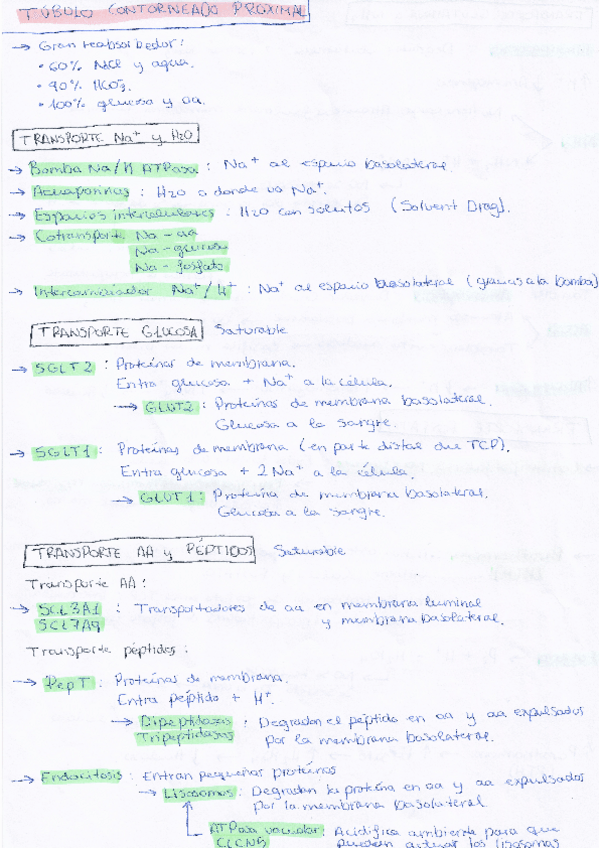 TÚBULO CONTORNEADO PROXIMAL
→ Gran reabsorbedor:
• 60% NaCl y agua.
• 90% HCO3-.
• 100% glucosa y aa.
TRANSPORTE Na+ y H2O
→ Bomba Na/K ATPasa : Na+ al espacio basolateral.
→ Acuaporinas : H2O a donde va Na+.
→ Espacios intercelulares : H2O con solutos (Solvent Drag).
→ Cotransporte Na - aa
Na - glucosa
Na - fosfato
→ Intercambiador Na+/H+ : Na+ al espacio basolateral (gracias a la bomba)
TRANSPORTE GLUCOSA Saturable
→ SGLT2 : Proteínas de membrana.
Entra glucosa + Na+ a la célula.
→ GLUT2 : Proteínas de membrana basolateral.
Glucosa a la sangre.
→ SGLT1 : Proteínas de membrana (en parte distal del TCP).
Entra glucosa + 2 Na+ a la célula.
→ GLUT1 : Proteína de membrana basolateral.
Glucosa a la sangre.
TRANSPORTE AA y PÉPTIDOS Saturable
Transporte AA :
→ SCL3A1 : Transportadores de aa en membrana luminal
SCL7A9 y membrana basolateral.
Transporte péptidos :
→ PepT : Proteínas de membrana.
Entra péptido + H+.
→ Dipeptidasas : Degradan el péptido en aa y aa expulsados
Tripeptidasas por la membrana basolateral.
→ Endocitosis : Entran pequeñas proteínas
→ Lisosomas : Degradan la proteína en aa y aa expulsados
por la membrana basolateral.
→ ATPasa vacuolar : Acidifica ambiente para que
CLCN5 puedan actuar los lisosomas